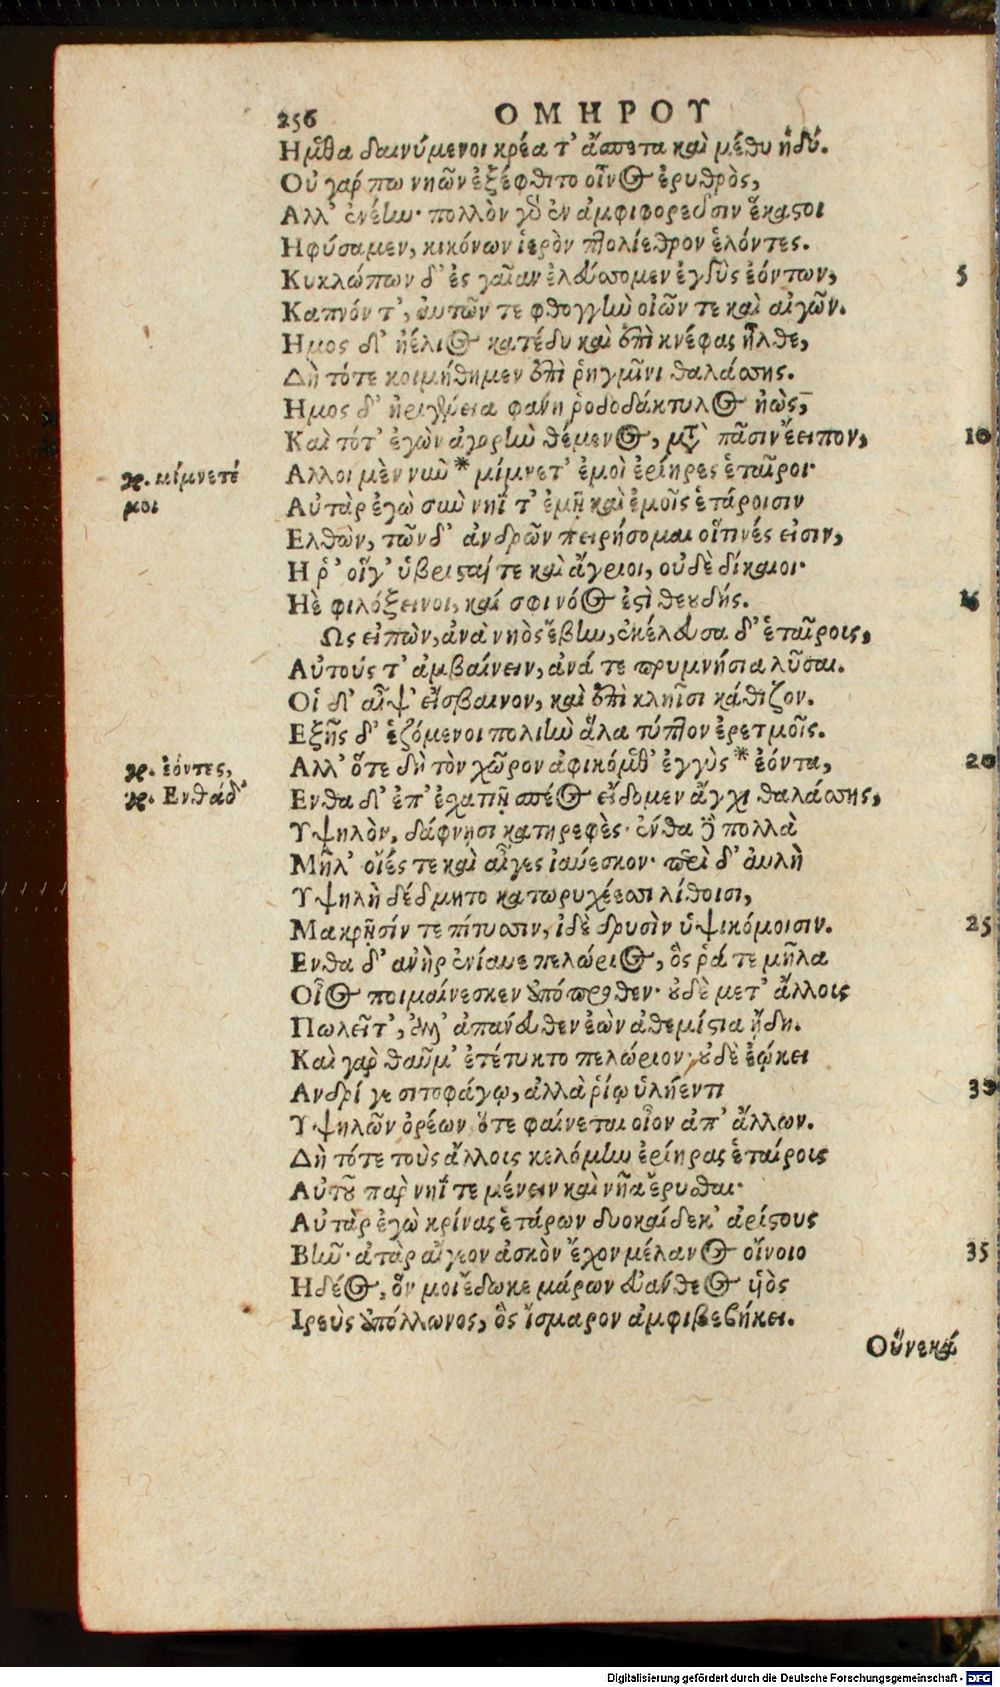 256 ΟΜΗΡΟΥ
Ημεθα δαινύμενοι κρέα τ' ἄσπετα καὶ μέθυ ἡδύ.
Οὐ γάρ πω νηῶν ἐξέφθιτο οἶνος ἐρυθρὸς,
Αλλ' ἐνέην· πολλὸν γὸ ἐν ἀμφιφορεῦσιν ἕκαστοι
Ηφύσαμεν, κικόνων ἱερὸν πτολίεθρον ἑλόντες.
Κυκλώπων δ' ἐς γαῖαν ἐλεύσσομεν ἐγγὺς ἐόντων, 5
Καπνόν τ', αὐτῶν τε φθογγὴν οἰῶν τε καὶ αἰγῶν.
Ημος δ' ἠέλιος κατέδυ καὶ ἐπὶ κνέφας ἦλθε,
Δὴ τότε κοιμήθημεν ἐπὶ ῥηγμῖνι θαλάσσης.
Ημος δ' ἠριγένεια φάνη ῥοδοδάκτυλος ἠὼς,
Καὶ τότ' ἐγὼν ἀγορὴν θέμενος, μετὰ πᾶσιν ἔειπον, 10
γρ. μίμνετέ
μοι
Αλλοι μὲν νῦν * μίμνετ' ἐμοὶ ἐρίηρες ἑταῖροι·
Αὐτὰρ ἐγὼ σὺν νηΐ τ' ἐμῇ καὶ ἐμοῖς ἑτάροισιν
Ελθὼν, τῶν δ' ἀνδρῶν πειρήσομαι οἵτινές εἰσιν,
Η ῥ' οἵγ' ὑβρισταί τε καὶ ἄγριοι, οὐδὲ δίκαιοι·
Ηὲ φιλόξεινοι, καί σφι νόος ἐστὶ θεουδής. 15
Ως εἰπὼν, ἀνὰ νηὸς ἔβην, ἐκέλευσα δ' ἑταῖροις,
Αὐτούς τ' ἀμβαίνειν, ἀνά τε πρυμνήσια λῦσαι.
Οἱ δ' αἶψ' εἴσβαινον, καὶ ἐπὶ κληῖσι κάθιζον.
Εξῆς δ' ἑζόμενοι πολιὴν ἅλα τύπτον ἐρετμοῖς.
γρ. ἐόντες,
γρ. Ενθάδ'
Αλλ' ὅτε δὴ τὸν χῶρον ἀφικόμεθ' ἐγγὺς * ἐόντα, 20
Ενθα δ' ἐπ' ἐσχατιῇ σπέος εἴδομεν ἄγχι θαλάσσης,
Υψηλὸν, δάφνῃσι κατηρεφὲς· ἔνθα δὲ πολλὰ
Μῆλ' οἴές τε καὶ αἶγες ἰαύεσκον· περὶ δ' αὐλὴ
Υψηλὴ δέδμητο κατωρυχέεσσι λίθοισι,
Μακρῇσίν τε πίτυσσιν, ἰδὲ δρυσὶν ὑψικόμοισιν. 25
Ενθα δ' ἀνὴρ ἐνίαυε πελώριος, ὅς ῥά τε μῆλα
Οἶος ποιμαίνεσκεν ἀπόπροθεν· οὐδὲ μετ' ἄλλοις
Πωλεῖτ', ἀλλ' ἀπάνευθεν ἐὼν ἀθεμίστια ᾔδη.
Καὶ γὰρ θαῦμ' ἐτέτυκτο πελώριον· οὐδὲ ἐῴκει
Ανδρί γε σιτοφάγῳ, ἀλλὰ ῥίῳ ὑλήεντι 30
Υψηλῶν ὀρέων ὅτε φαίνεται οἶον ἀπ' ἄλλων.
Δὴ τότε τοὺς ἄλλοις κελόμην ἐρίηρας ἑταίροις
Αὐτοῦ παρ νηΐ τε μένειν καὶ νῆα ἔρυσθαι·
Αὐτὰρ ἐγὼ κρίνας ἑτάρων δυοκαίδεκ' ἀρίστους
Βῆν· ἀτὰρ αἴγεον ἀσκὸν ἔχον μέλανος οἴνοιο 35
Ηδέος, ὅν μοι ἔδωκε μάρων εὐάνθεος υἱὸς
Ιρεὺς ἀπόλλωνος, ὃς ἴσμαρον ἀμφιβεβήκει.
Οὕνεκά
Digitalisierung gefördert durch die Deutsche Forschungsgemeinschaft - DFG